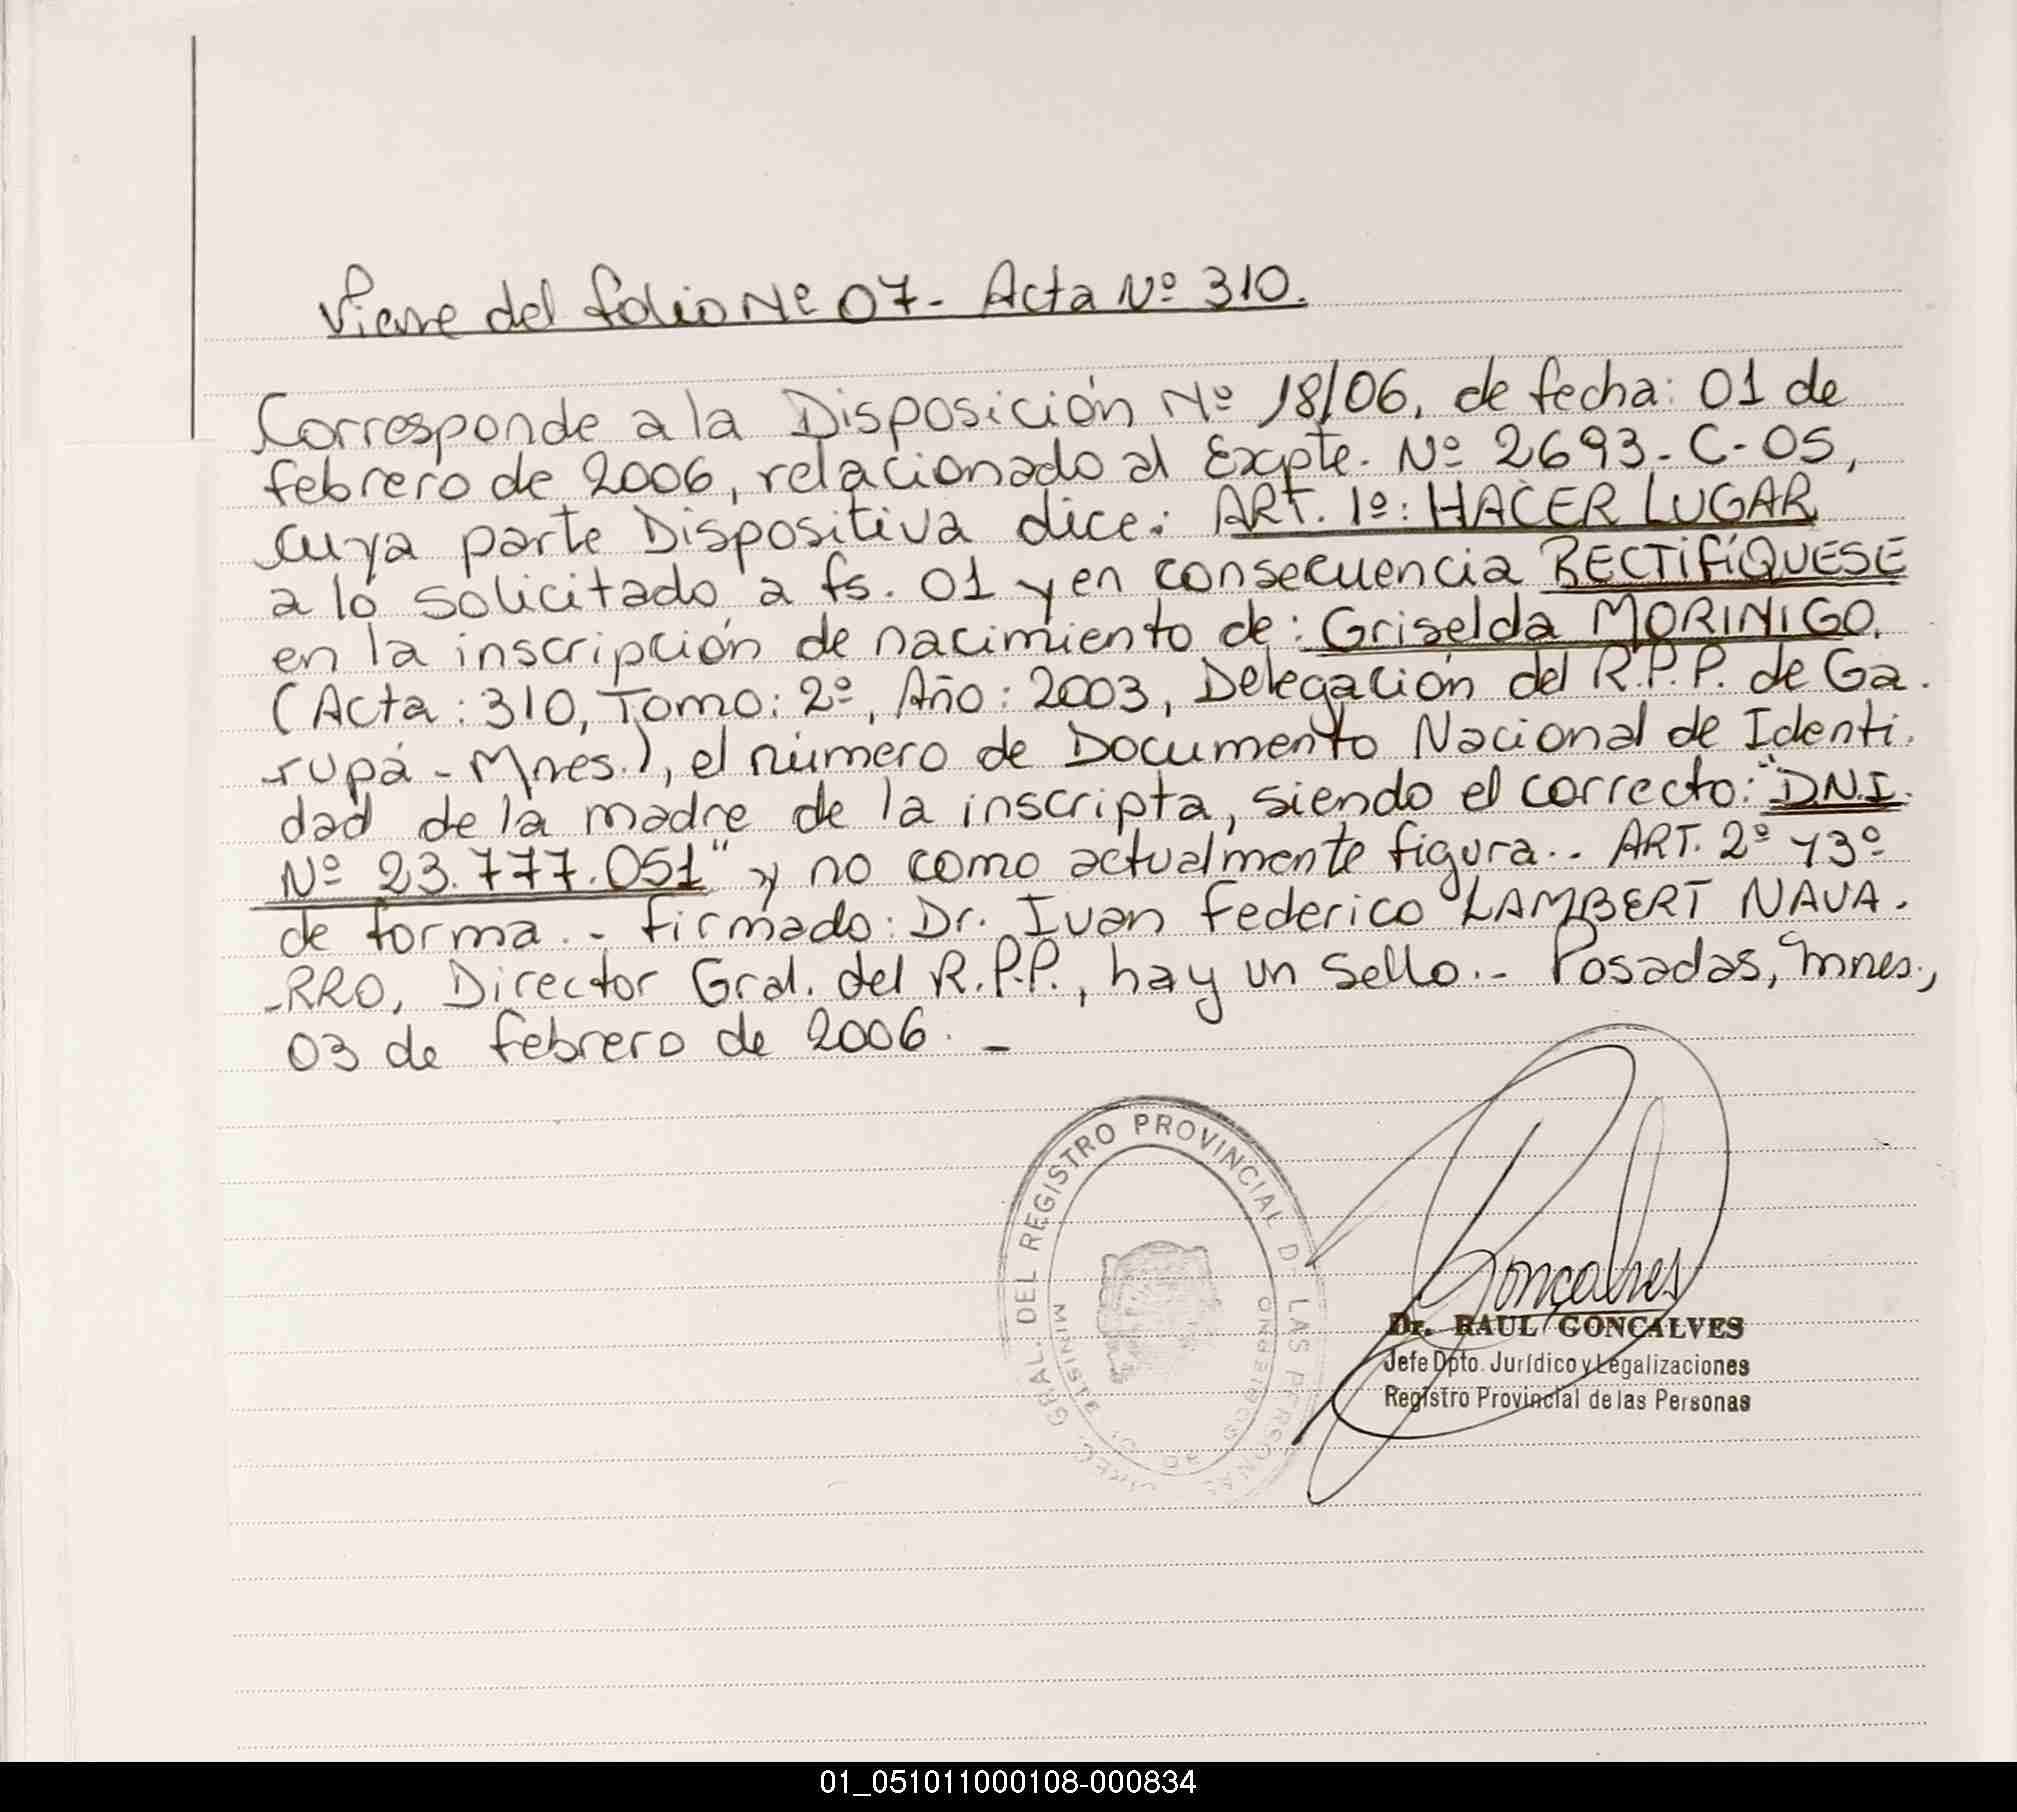 Viene del folio Nº 07- Acta Nº 310.
Corresponde a la Disposición Nº 18/06, de fecha: 01 de
febrero de 2006, relacionado al Expte. Nº 2693-C-05,
cuya parte Dispositiva dice: ART. 1º: HACER LUGAR
a lo solicitado a fs. 01 y en consecuencia RECTIFÍQUESE
en la inscripción de nacimiento de: Griselda MORINIGO.
(Acta: 310, Tomo: 2º, Año: 2003, Delegación del R.P.P. de Ga-
rupá - Mnes.), el número de Documento Nacional de Identi-
dad de la madre de la inscripta, siendo el correcto: "D.N.I.
Nº 23.777.051" y no como actualmente figura.- ART. 2º y 3º
de forma.- Firmado: Dr. Ivan Federico LAMBERT NAVA-
-RRO, Director Gral. del R.P.P., hay un sello.- Posadas, Mnes.,
03 de febrero de 2006. -
GRAL. DEL REGISTRO PROVINCIAL DE LAS PERSONAS
Gonçalves
Dr. RAUL GONCALVES
Jefe Dpto. Jurídico y Legalizaciones
Registro Provincial de las Personas
01_051011000108-000834